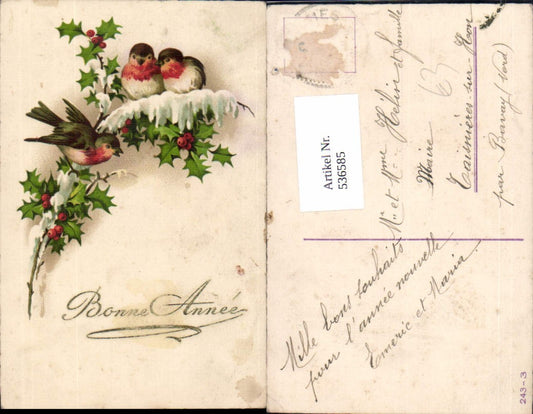 Bonne Année
Artikel Nr.
536585
Mr et Mme Hélire et famille
Maire
63
Taisnières-sur-Hon
par Bavay (Nord)
Mille bons souhaits
pour l'année nouvelle
Emeric et Maria
243-3